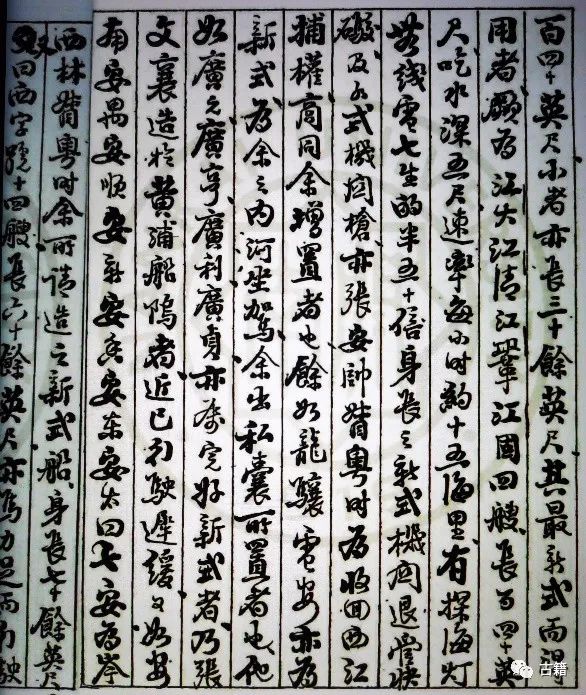 百四十英尺小者亦長三十餘英尺其最新式而得
用者厥為江大江清江鞏江固四艘長百四十英
尺吃水深五尺速率每小时約十五海里有探海灯
无线電七生的半五十倍身長之新式機関退管快
礮及小式機関槍亦張安帥督粤时為收回西江
捕權商同余增置者也餘如龍驤電安亦為
新式為余之内河坐駕余出私囊所置者也他
如廣元廣亨廣利廣貞亦為完好新式者乃張
文襄造於黄浦船塢者近已行駛遲緩又如安
南安禺安順安新安香安东安太曰七安為岑
西林督粤时余所請造之新式船身長七十餘英尺
又曰西字號十四艘長六十餘英尺亦馬力足而行駛
古籍